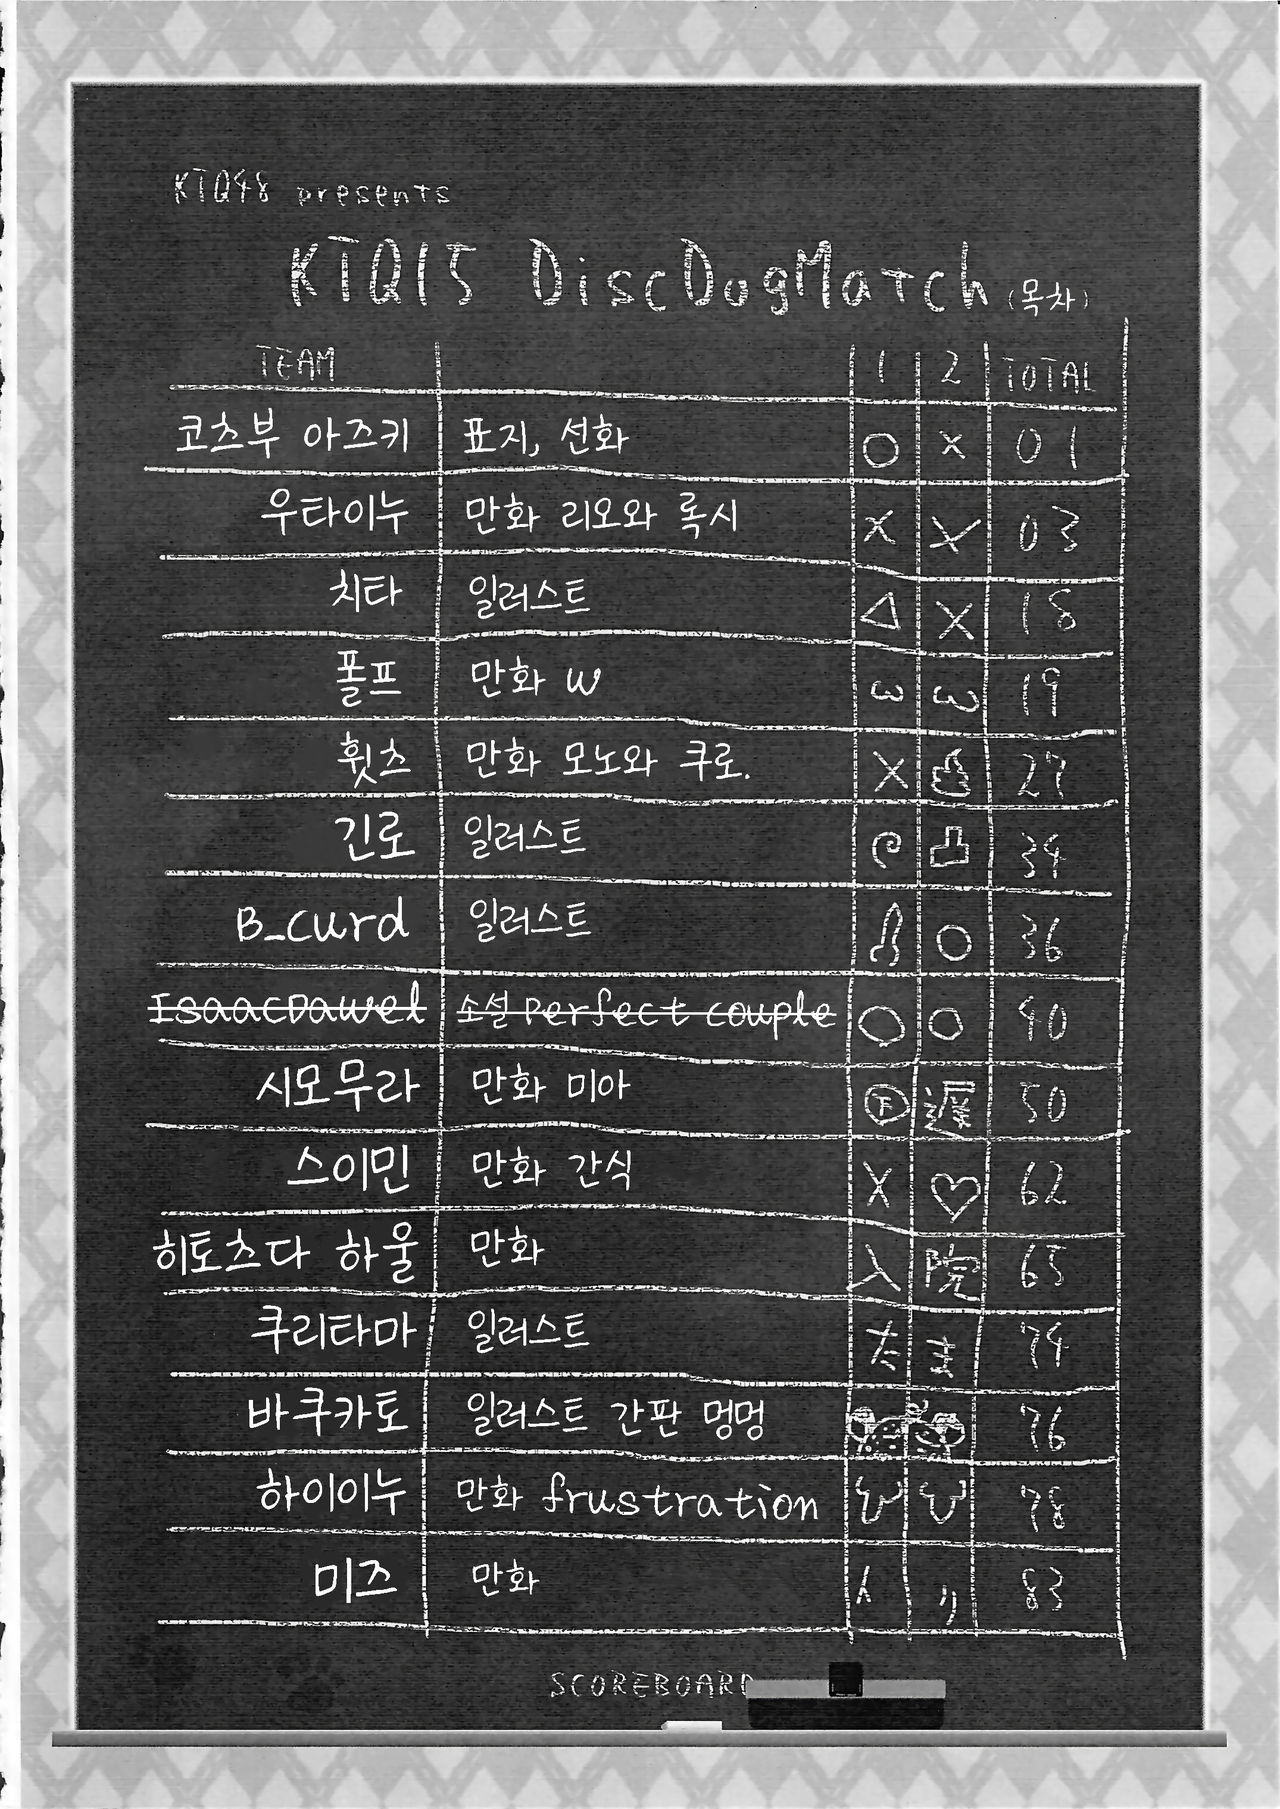 KTQ48 presents
KTQ15 DiscDogMatch (목차)
TEAM 1 2 TOTAL
코츠부 아즈키 표지, 선화 ○ × 01
우타이누 만화 리오와 록시 × × 03
치타 일러스트 △ × 18
폴프 만화 W ω ω 19
휫츠 만화 모노와 쿠로. × 27
긴로 일러스트 凸 34
B_curd 일러스트 ○ 36
IsaacPawel 소설 Perfect couple ○ ○ 40
시모무라 만화 미아 下 遅 50
스이민 만화 간식 × ♡ 62
히토츠다 하울 만화 入 院 65
쿠리타마 일러스트 た ま 74
바쿠카토 일러스트 간판 멍멍 76
하이이누 만화 frustration 78
미즈 만화 83
SCOREBOARD